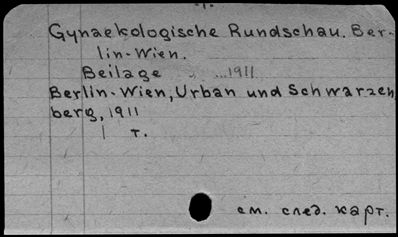 Gynaekologische Rundschau. Ber-
lin-Wien.
Beilage ...1911
Berlin-Wien, Urban und Schwarzen
berg, 1911
1 т.
см. след. карт.